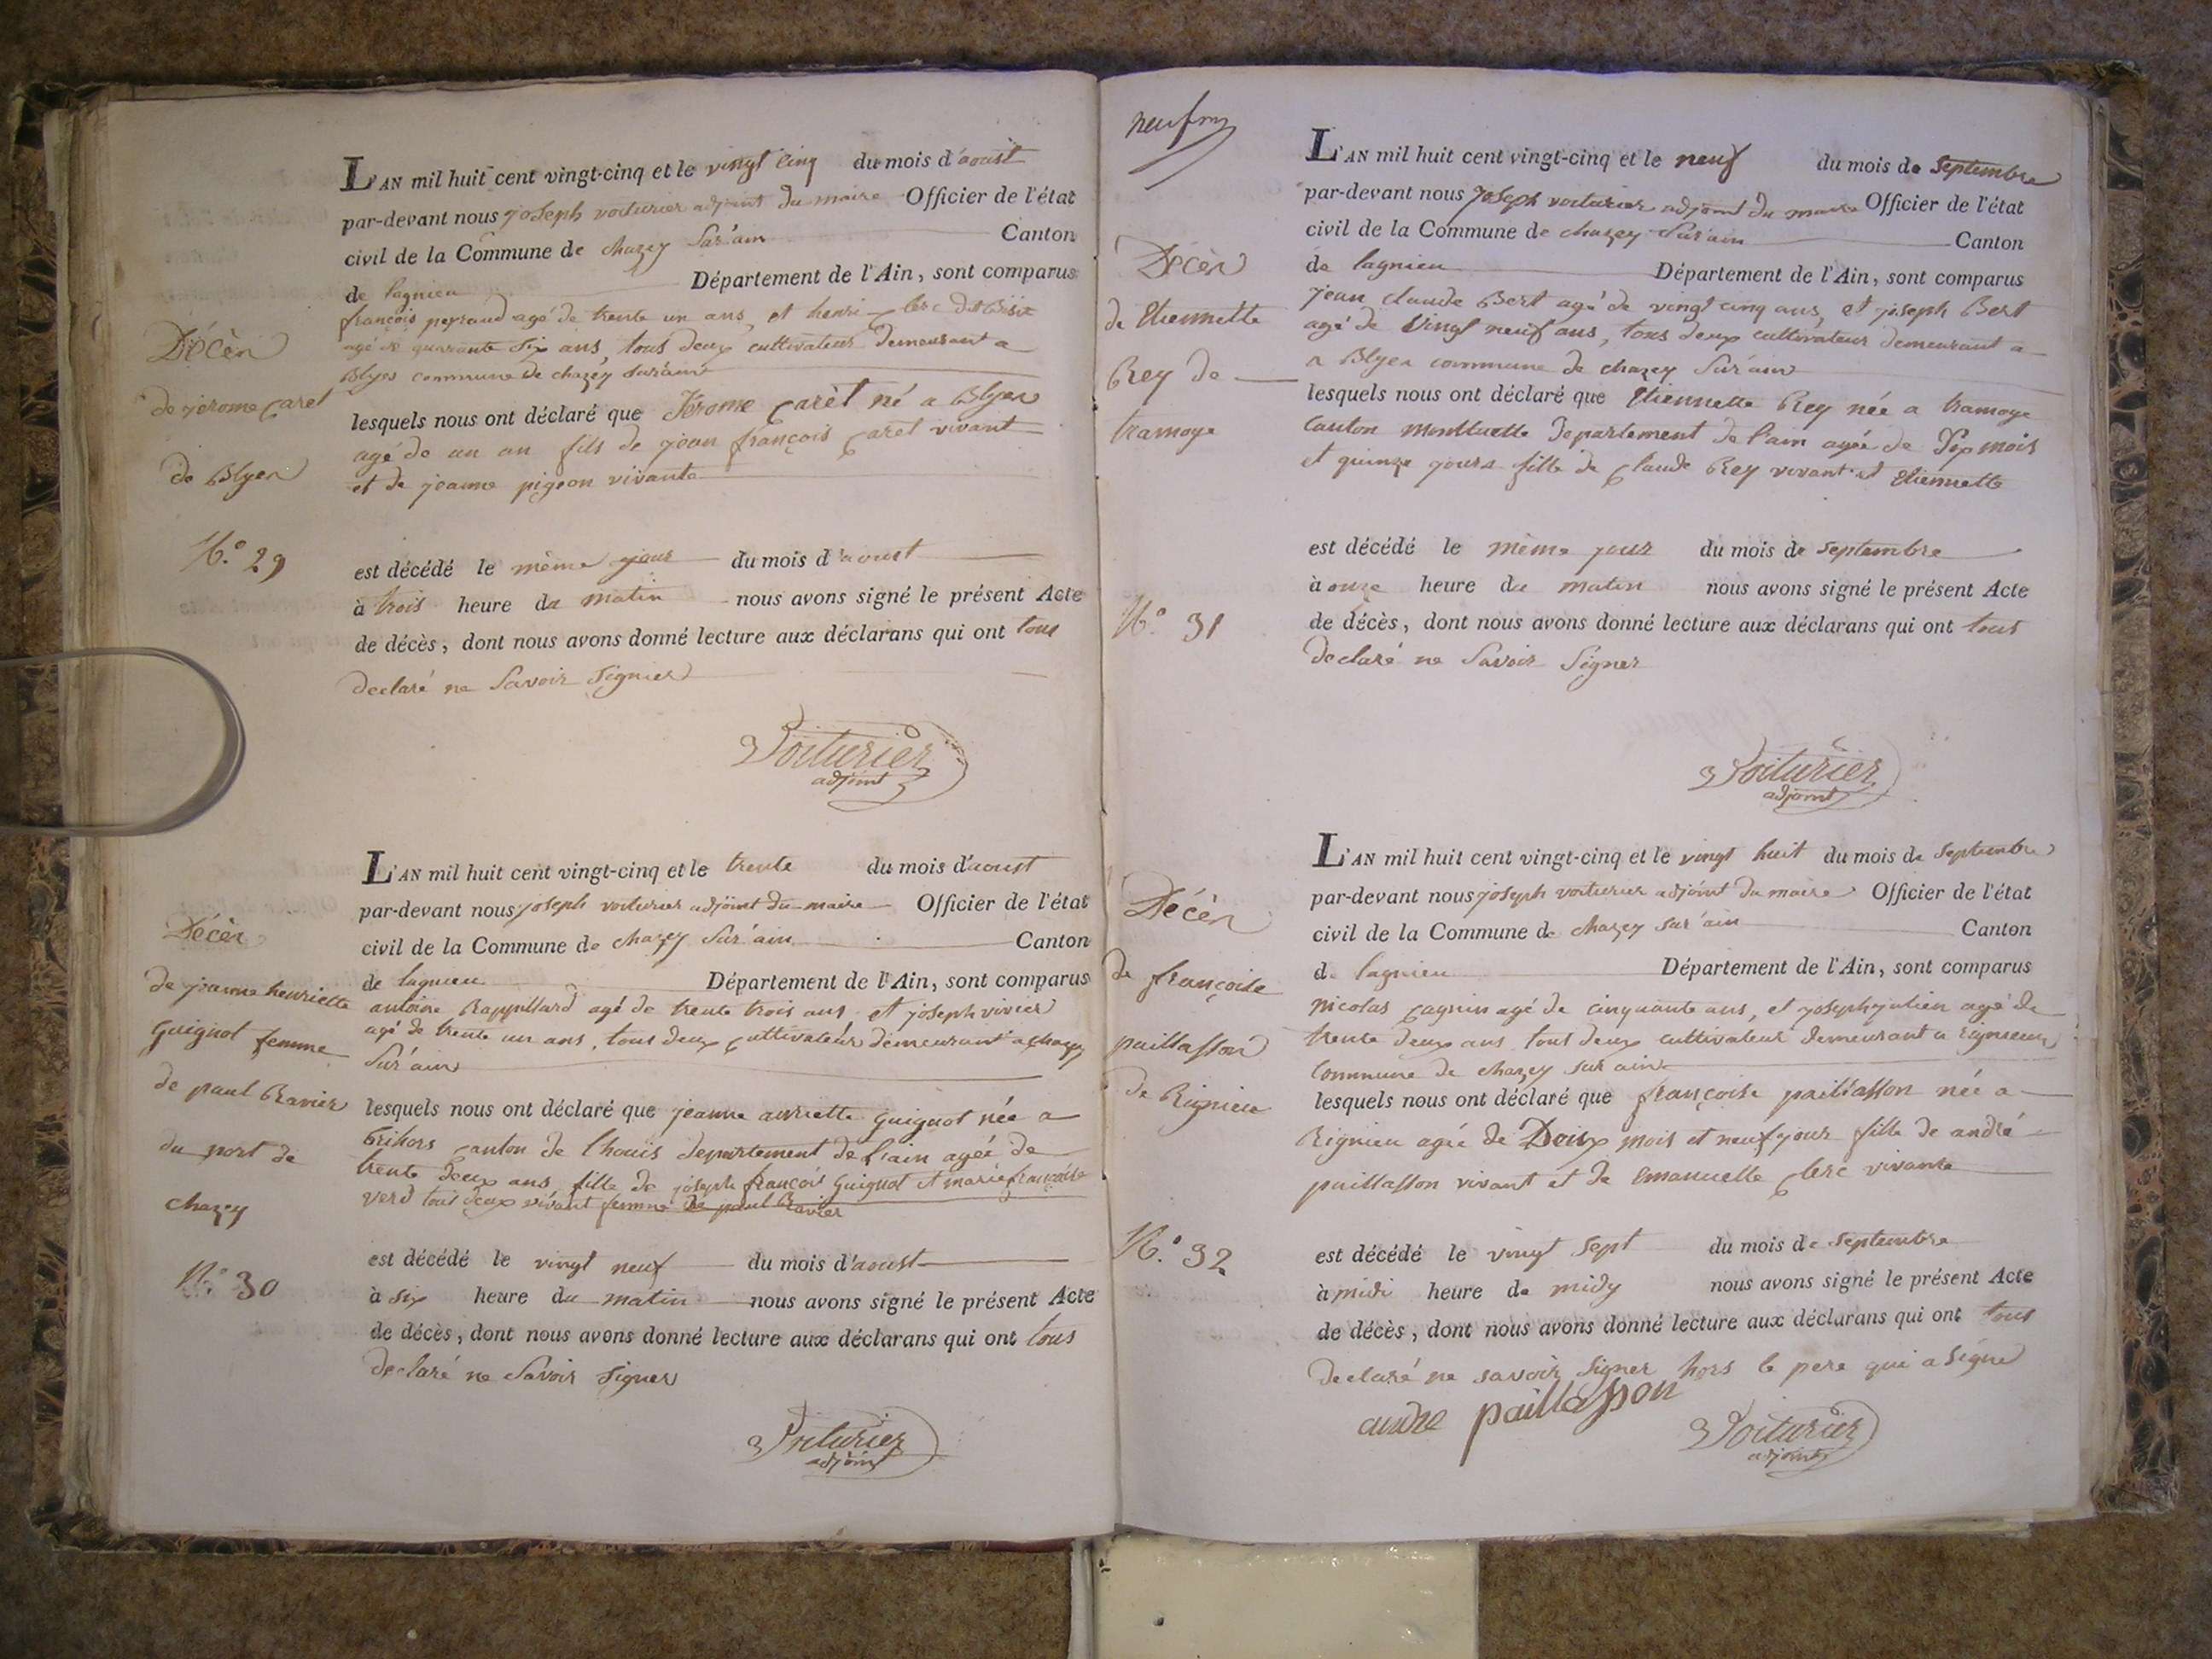 L'AN mil huit cent vingt-cinq et le vingt cinq du mois d'aoust
par-devant nous joseph voiturier adjoint du maire Officier de l'état
civil de la Commune de chazey Sur'ain Canton
de lagnieu Département de l'Ain, sont comparus
françois peyraud agé de trente un ans, et henri clerc dit
agé de quarante Six ans, tous deux cultivateur demeurant a
Blyes commune de chazey Sur'ain
Décès
de jerome Caret
de Blyes
N.º 29
lesquels nous ont déclaré que Jérome Caret né a Blyes
agé de un an fils de jean françois Caret vivant
et de jeanne pigeon vivante
est décédé le même jour du mois d'aoust
à trois heure du matin nous avons signé le présent Acte
de décès, dont nous avons donné lecture aux déclarans qui ont tous
declaré ne Savoir Signier
Voiturier
adjoint
L'AN mil huit cent vingt-cinq et le trente du mois d'aoust
par-devant nous joseph voiturier adjoint du maire Officier de l'état
civil de la Commune de chazey Sur'ain Canton
de lagnieu Département de l'Ain, sont comparus
antoine Rappillard agé de trente trois ans et joseph vivier
agé de trente un ans, tous deux cultivateur demeurant a chazey
Sur'ain
Décès
de jeanne henriette
Guignot femme
de paul Ravier
du port de
chazey
N.º 30
lesquels nous ont déclaré que jeanne anriette Guignot née a
canton de lhouis departement de l'ain agée de
trente deux ans fille de joseph françois Guignot et marie françoise
verd tous deux vivant femme de paul Ravier
est décédé le vingt neuf du mois d'aoust
à six heure du matin nous avons signé le présent Acte
de décès, dont nous avons donné lecture aux déclarans qui ont tous
declaré ne Savoir signer
Voiturier
adjoint
L'AN mil huit cent vingt-cinq et le neuf du mois de Septembre
par-devant nous Joseph voiturier adjoint du maire Officier de l'état
civil de la Commune de chazey Sur'ain Canton
de lagnieu Département de l'Ain, sont comparus
jean claude Bert agé de vingt cinq ans, et joseph Bert
agé de vingt neuf ans, tous deux cultivateur demeurant a
a Blyes commune de chazey Sur'ain
Décès
de Etiennette
Rey de
tramoye
N.º 31
lesquels nous ont déclaré que Etiennette Rey née a tramoye
Canton Montluelle Departement de l'ain agée de Six mois
et quinze jours fille de Claude Rey vivant et Etiennette
est décédé le même jour du mois de septembre
à onze heure du matin nous avons signé le présent Acte
de décès, dont nous avons donné lecture aux déclarans qui ont tous
declaré ne Savoir Signer
Voiturier
adjoint
L'AN mil huit cent vingt-cinq et le vingt huit du mois de Septembre
par-devant nous joseph voiturier adjoint du maire Officier de l'état
civil de la Commune de chazey sur'ain Canton
de lagnieu Département de l'Ain, sont comparus
nicolas Cagnin agé de cinquante ans, et joseph julien agé de
trente deux ans tous deux cultivateur demeurant a Rignieu
Commune de chazey sur ain
Décès
de françoise
paillasson
de Rignieu
N.º 32
lesquels nous ont déclaré que françoise paillasson née a
Rignieu agée de Deux mois et neuf jour fille de andré
paillasson vivant et de Emanuelle Clerc vivante
est décédé le vingt sept du mois de septembre
à midi heure de midy nous avons signé le présent Acte
de décès, dont nous avons donné lecture aux déclarans qui ont tous
declaré ne savoir signer hors le pere qui a signé
andre paillasson
Voiturier
adjoint